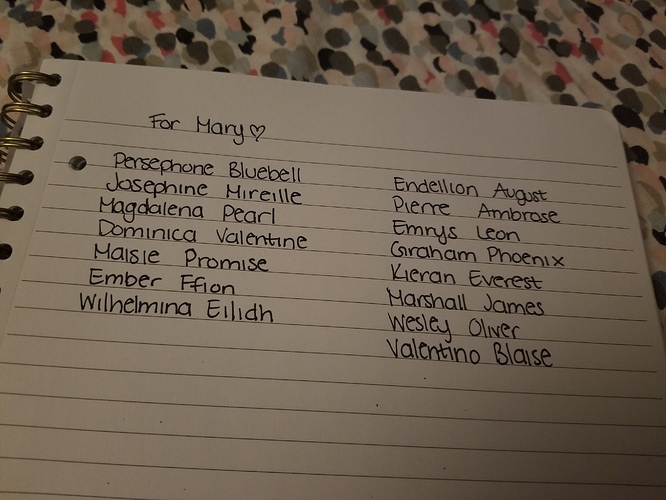 For Mary♡
Persephone Bluebell
Josephine Mireille
Magdalena Pearl
Dominica Valentine
Maisie Promise
Ember Ffion
Wilhelmina Eilidh
Endellion August
Pierre Ambrose
Emrys Leon
Graham Phoenix
Kieran Everest
Marshall James
Wesley Oliver
Valentino Blaise